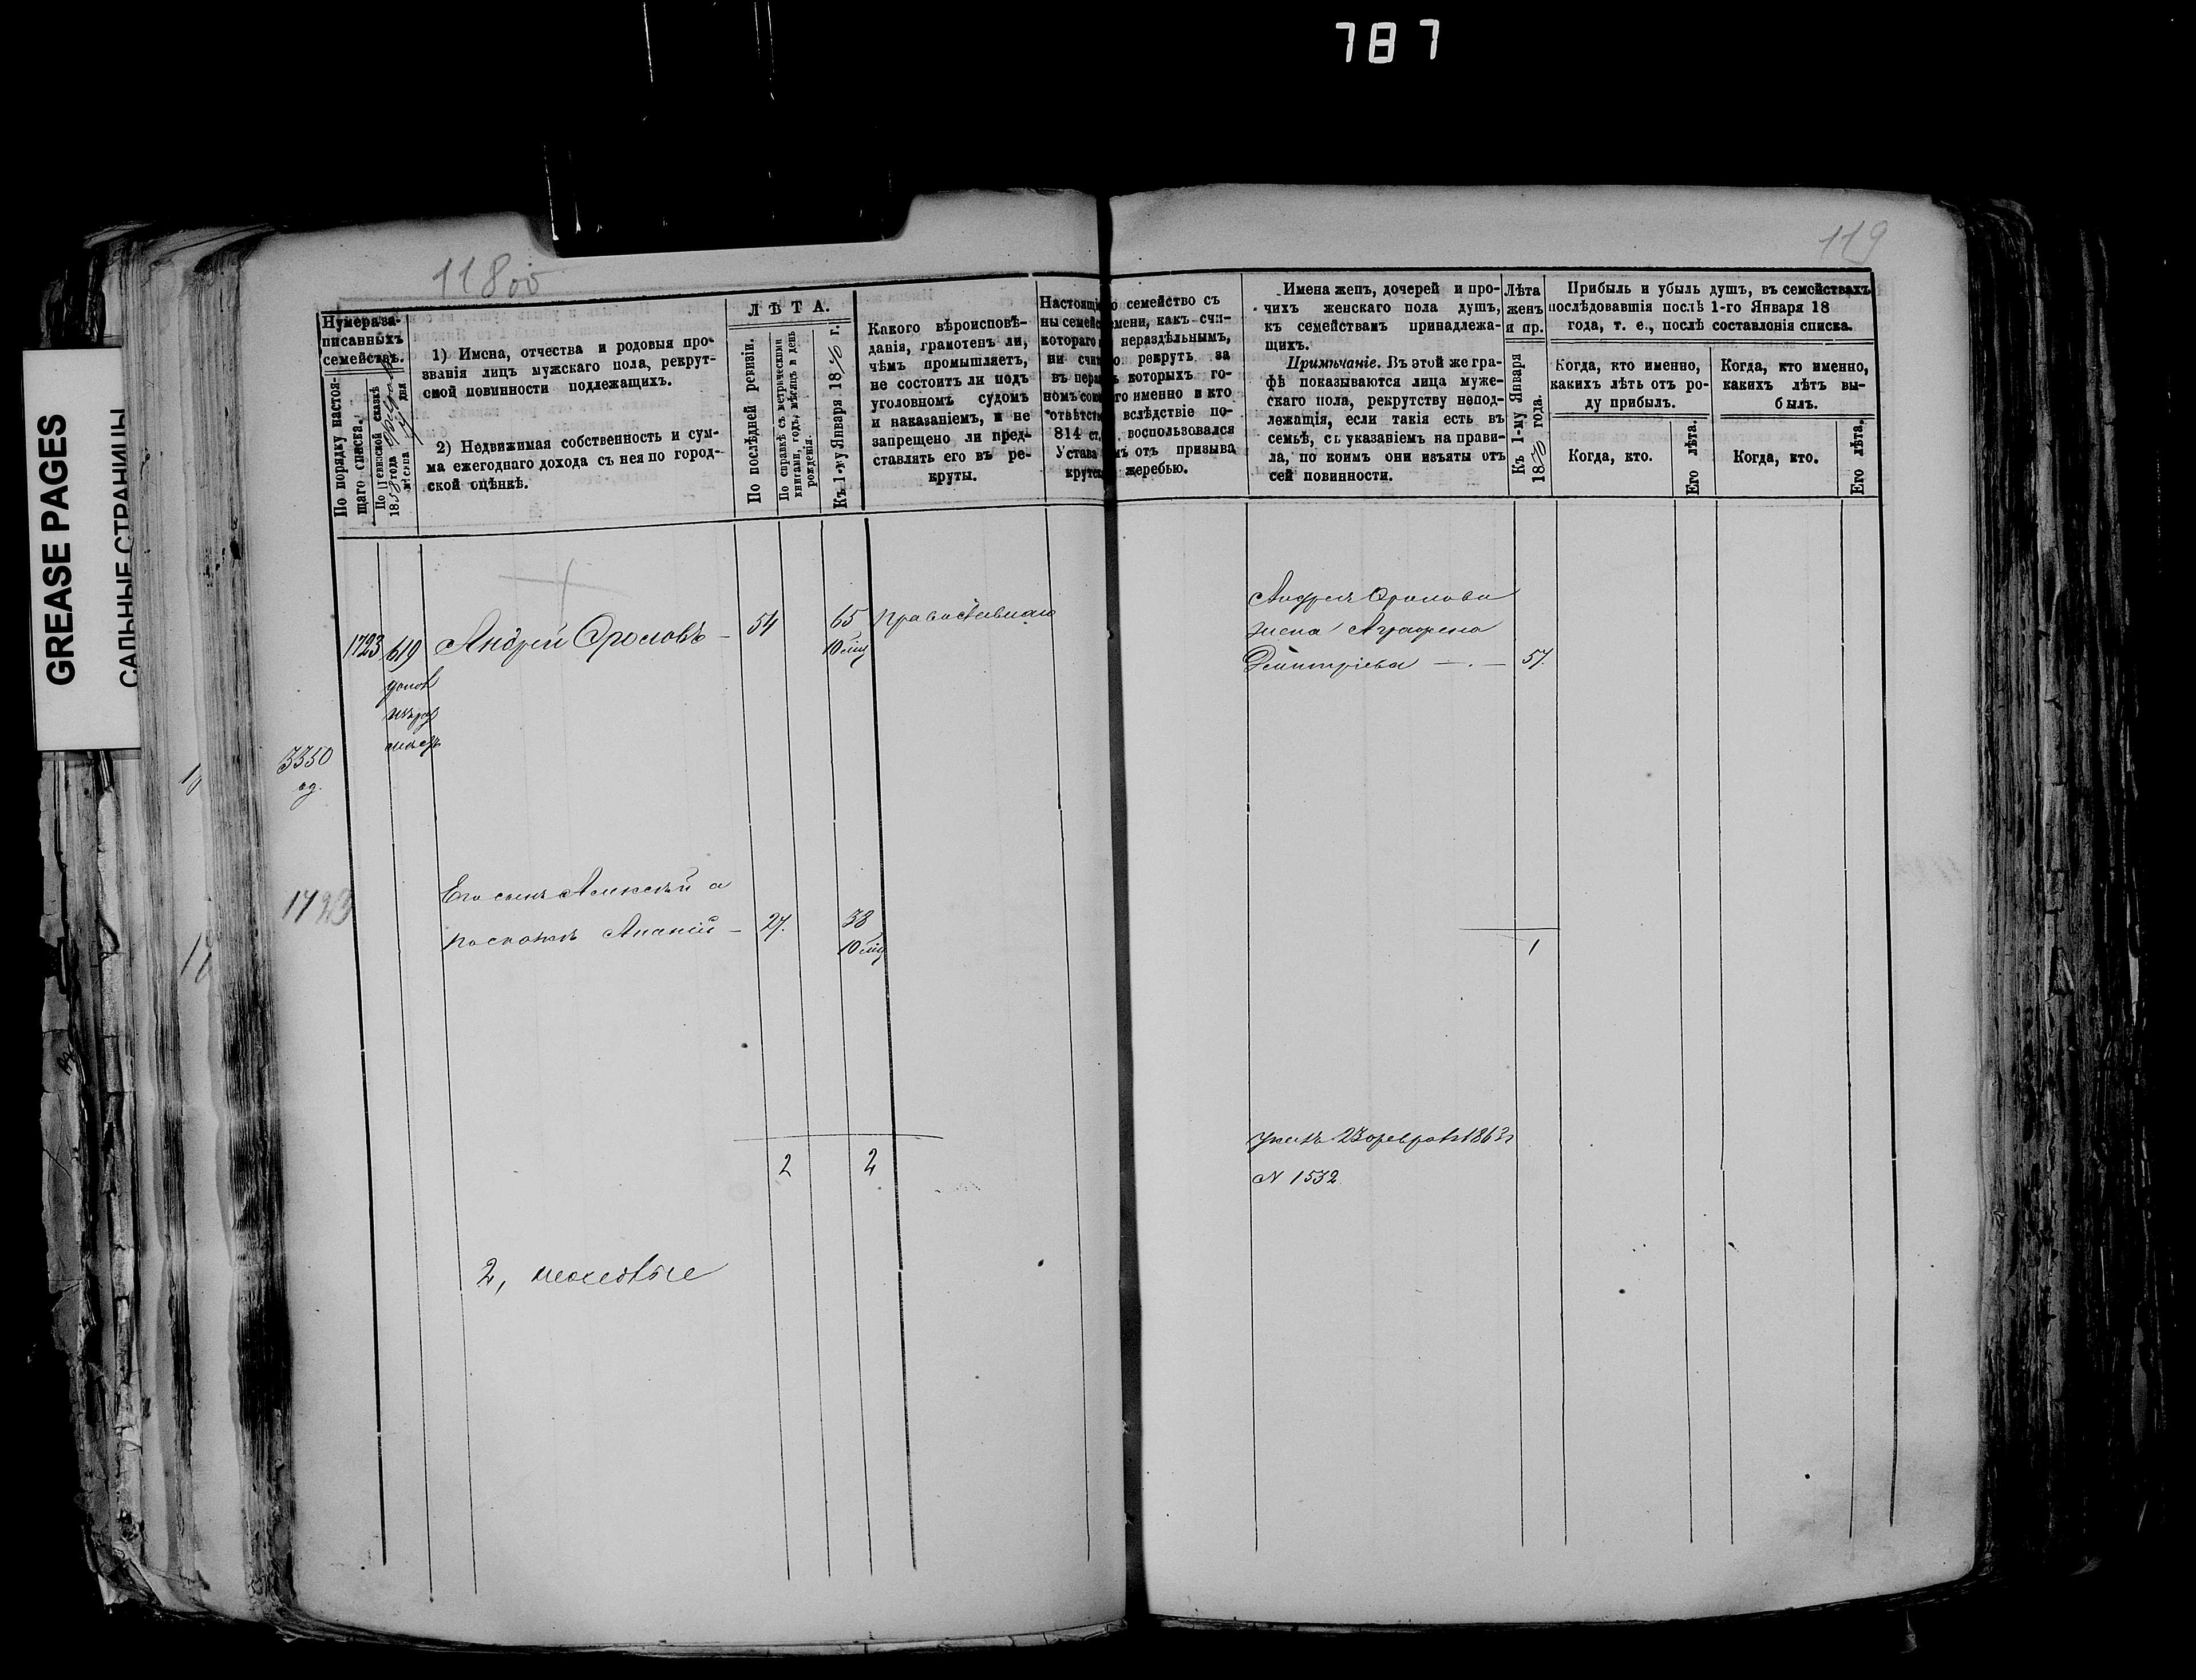 787
GREASE PAGES
САЛЬНЫЕ СТРАНИЦЫ
118об
119
Нумера за-
писанныхъ
семействъ.
По порядку настоя-
щаго списка.
По ревизской сказкѣ
1858 года
мѣсяца 17 дня
1) Имена, отчества и родовыя про-
званія лицъ мужскаго пола, рекрут-
ской повинности подлежащихъ.
2) Недвижимая собственность и сум-
ма ежегоднаго дохода съ нея по город-
ской оцѣнкѣ.
ЛѢТА.
По послѣдней ревизіи.
По справкѣ съ метрическими
книгами, годъ, мѣсяцъ и день
рожденія.
Къ 1-му Января 1870 г.
Какого вѣроисповѣ-
данія, грамотенъ ли,
чѣмъ промышляетъ,
не состоитъ ли подъ
уголовномъ судомъ
и наказаніемъ, и не
запрещено ли пред-
ставлять его въ ре-
круты.
Настоящ о семейство съ
ны семей емени, какъ счи-
котораго нераздѣльнымъ,
ни счит о рекрутъ за
въ пер которыхъ го-
номъ со го именно и кто
отвѣтст вслѣдствіе по-
814 ст. воспользовался
Устава мъ отъ призыва
крутс жеребью.
Имена женъ, дочерей и про-
чихъ женскаго пола душъ,
къ семействамъ принадлежа-
щихъ.
Примѣчаніе. Въ этой же гра-
фѣ показываются лица муже-
скаго пола, рекрутству непод-
лежащія, если такія есть въ
семьѣ, съ указаніемъ на прави-
ла, по коимъ они изъяты отъ
сей повинности.
Лѣта
женъ
и пр.
Къ 1-му Января
1870 года.
Прибыль и убыль душъ, въ семействахъ
послѣдовавшія послѣ 1-го Января 18
года, т. е., послѣ составленія списка.
Когда, кто именно,
какихъ лѣтъ отъ ро-
ду прибылъ.
Когда, кто именно,
какихъ лѣтъ вы-
былъ.
Когда, кто.
Его лѣта.
Когда, кто.
Его лѣта.
1723 619 Андрей Фроловъ - 54 65 православнаго
10 мц
Андрея Фролова
жена Аграфена
Дмитріева — . — 57.
3350
1723
Его сынъ Алексѣй а
по сказкѣ Ананій - 27. 38
10 мц
1
2 2
Указъ 23 февраля 1863 г
N 1532
2,